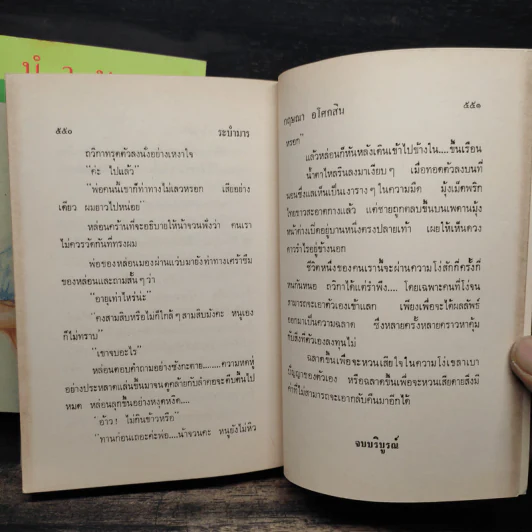 ๕๕๐ ระบำมาร
ถวิกาทรุดตัวลงนั่งอย่างเหงาใจ
"ค่ะ ไปแล้ว"
"พ่อคนนี้เขาก็ท่าทางไม่เลวหรอก เสียอย่าง
เดียว ผมยาวไปหน่อย"
หล่อนคร้านที่จะอธิบายให้น้าจวนฟังว่า คนเรา
ไม่ควรวัดกันที่ทรงผม
พ่อของหล่อนมองผ่านแว่นมายังท่าทางเคร้าซึม
ของหล่อนและถามสั้นๆว่า
"อายุเท่าไหร่น่ะ"
"คงสามสิบหรือไม่ก็ใกล้ๆสามสิบมังคะ หนูเอง
ก็ไม่ทราบ"
"เขาจบอะไร"
หล่อนตอบคำถามอย่างซังกะตาย........ความหดหู่
อย่างประหลาดแล่นขึ้นมาจนดูคล้ายกับลำคอจะตีบตันไป
หมด หล่อนลุกขึ้นอย่างหงุดหงิด....
"อ้าว! ไม่กินข้าวหรือ"
"ทานก่อนเถอะค่ะพ่อ....น้าจวนคะ หนูยังไม่หิว
กฤษณา อโศกสิน ๕๕๑
หรอก"
แล้วหล่อนก็หันหลังเดินเข้าไปข้างใน....ขึ้นเรือน
น้ำตาไหลรินลงมาเงียบๆ เมื่อทอดตัวลงบนที่
นอนซึ่งแลเห็นเป็นเงารางๆในความมืด มุ้งเม็ดพริก
ไทยขาวสะอาดกางแล้ว แต่ชายถูกตลบขึ้นบนเพดานมุ้ง
หน้าต่างเปิดอยู่บานหนึ่งตรงปลายเท้า เผยให้เห็นดวง
ดาวรำไรอยู่ข้างนอก
ชีวิตหนึ่งของคนเรานี้จะผ่านความโง่สักกี่ครั้งกี่
หนกันหนอ ถวิกาได้แต่รำพึง.... โดยเฉพาะคนที่โง่จน
สามารถจะเอาตัวเองเข้าแลก เพียงเพื่อจะได้ผลลัพธ์
ออกมาเป็นความฉลาด ซึ่งหลายครั้งหลายคราวหาคุ้ม
กับสิ่งที่ตัวเองลงทุนไม่
ฉลาดขึ้นเพื่อจะหวนเสียใจในความโง่เขลาเบา
ปัญญาของตัวเอง หรือฉลาดขึ้นเพื่อจะหวนเสียดายสิ่งมี
ค่าที่ไม่สามารถจะเอากลับคืนมาอีกได้
จบบริบูรณ์